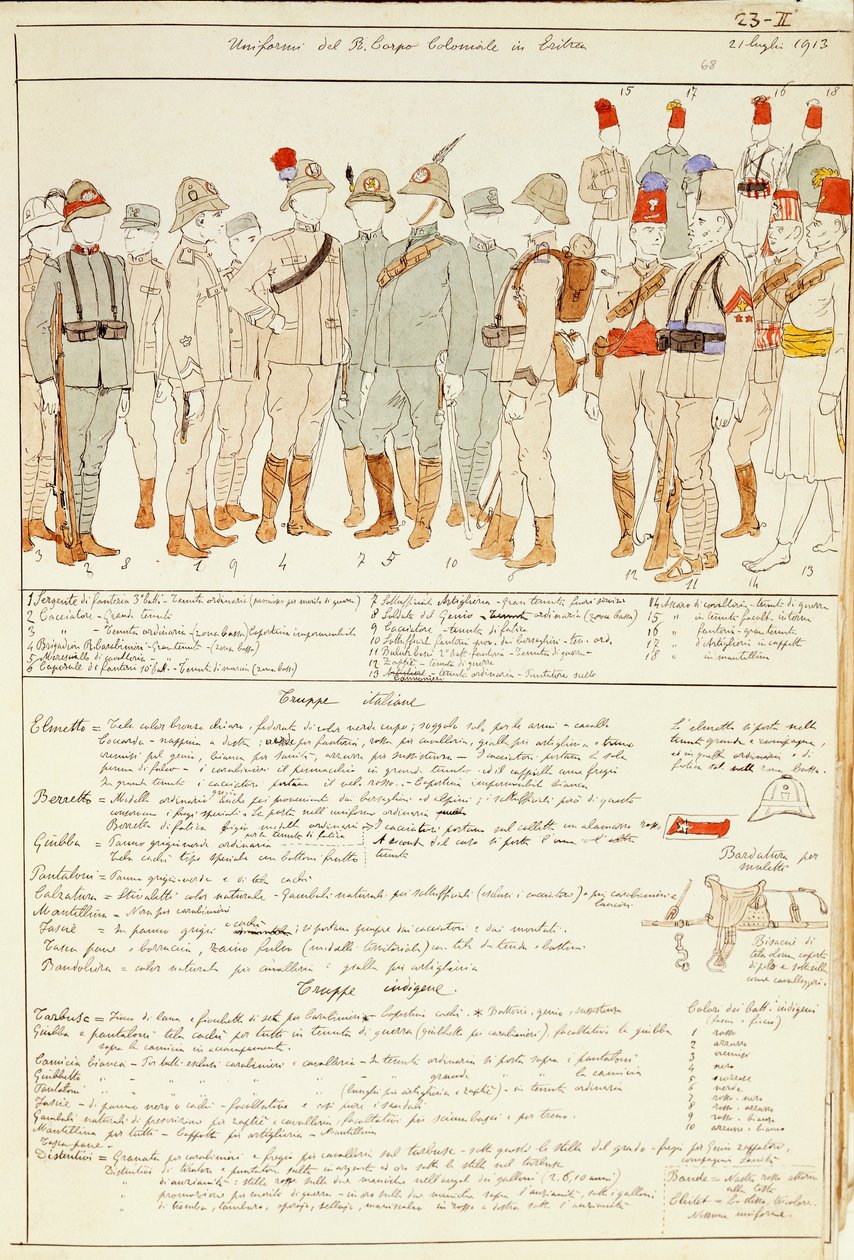 23-II
Uniformi del R. Corpo Coloniale in Eritrea
21 luglio 1913
68
15 17 16 18
3 2 8 1 9 4 7 5 10 6 12 11 14 13
1 Sergente di fanteria 3° batt. - Tenuta ordinaria (promosso per merito di guerra)
2 Cacciatore - Grande tenuta
3 " - Tenuta ordinaria - (zona bassa) Copertina impermeabile
4 Brigadiere R. Carabinieri - Gran tenuta - (zona bassa)
5 Maresciallo di cavalleria - "
6 Caporale di fanteria 10° batt. - Tenuta di marcia (zona bassa)
7 Sottufficiale Artiglieria - Gran tenuta fuori servizio
8 Soldato del Genio - Tenuta ordinaria (zona bassa)
9 Cacciatore - tenuta di fatica
10 Sottufficiale fanteria prov. dai bersaglieri - ten. ord.
11 Buluk basci 2° batt. fanteria - Tenuta di guerra -
12 Zaptiè - tenuta di guerra
13 Cannoniere - tenuta ordinaria - Puntatore scelto
14 Ascaro di cavalleria - tenuta di guerra
15 " in tenuta facolt. inverno
16 " fanteria - gran tenuta
17 " d'Artiglieria in cappotto
18 " in mantellina
Truppe italiane
Elmetto = Tela color bronzo chiaro, foderata di color verde cupo; soggolo solo per le armi a cavallo
Coccarda - nappina a destra; verde per fanteria, rossa per cavalleria, gialla per artiglieria e treno
cremisi pel genio, bianca per sanità, azzurra per sussistenza - I cacciatori portano la sola
piuma di falco - i carabinieri il pennacchio in grande tenuta - ed il cappello come fregio
In grande tenuta i cacciatori portano il velo rosso. - Copertina impermeabile bianca
Berretto = Modello ordinario grigio anche pei provenienti dai bersaglieri ed alpini; i sottufficiali però di questi
conservano i fregi speciali. Lo porta nell'uniforme ordinaria
Berretto di fatica grigio modello ordinario per la tenuta di fatica
Giubba = Panno grigio verde ordinaria
Tela cachi tipo speciale con bottoni frutto
I cacciatori portano sul colletto un alamaro rosso
A seconda del caso si porta l'una o l'altra
tenuta
L'elmetto si porta nella
tenuta grande e campagna,
ed in quella ordinaria e di
fatica sol nella zona bassa.
Pantaloni = Panno grigio-verde e di tela cachi
Calzatura = Stivaletti color naturale - Gambali naturali pei sottufficiali (esclusi i cacciatori) e pei carabinieri e
lancieri
Mantellina - Nera per carabinieri
Fascie = In panno grigio e cachi; si portano sempre dai cacciatori e dai montati.
Tasca pane e borraccia, zaino fulvo (modello territoriale) con tela da tenda e bastoni
Bandoliera = color naturale per cavalleria = gialla per artiglieria
Bardatura per
muletto
Bisaccie di
tela olona coperta
di pelo e sotto sella
come cavalleggeri.
Truppe indigene.
Tarbusc = Fiocco di lana e fiocchetto di seta per carabinieri * - Copertina cachi. * Batterie, genio, sussistenza
Giubba e pantaloni tela cachi per tutti in tenuta di guerra (giubbetto pei carabinieri), facoltativa la giubba
sopra la camicia in accampamento.
Camicia bianca - Per tutti esclusi carabinieri e cavalleria - In tenuta ordinaria si porta sopra i pantaloni
Giubbetto " " " " " " - " grande " " la camicia
Pantaloni " " " " " (lunghi per artiglieria e zaptiè) - in tenuta ordinaria
Fascie - di panno nero o cachi - facoltative e così pure i sandali
Gambali naturali di prescrizione per zaptiè e cavalleria, facoltativi per sciumbasci e per treno.
Mantellina per tutti - Cappotto per artiglieria e Mantellina
Tasca pane -
Distintivi = Granata per carabinieri e fregio per cavalleria sul tarbusc - sotto questo le stelle del grado - fregi per Genio zappatori,
compagnia Sanità
Distintivi di tiratore e puntatore scelto in argento ed oro sotto le stelle nel tarbusc
" di anzianità: stelle rosse sulle due maniche nell'angolo dei galloni (2, 6, 10 anni)
" promozione per merito di guerra - in oro sulle due maniche sopra l'anzianità, sotto i galloni
" di tromba, tamburo, sellaio, maniscalco in rosso a destra sotto l'anzianità
Colori dei batt. indigeni
(fascie e fiocco)
1 rosso
2 azzurro
3 cremisi
4 nero
5 scozzese
6 verde
7 rosso-nero
8 rosso-azzurro
9 rosso-bianco
10 azzurro-bianco
Bande = Nastro rosso attorno
alla testa
Chitet = Lo stesso, tricolore.
Nessuna uniforme.